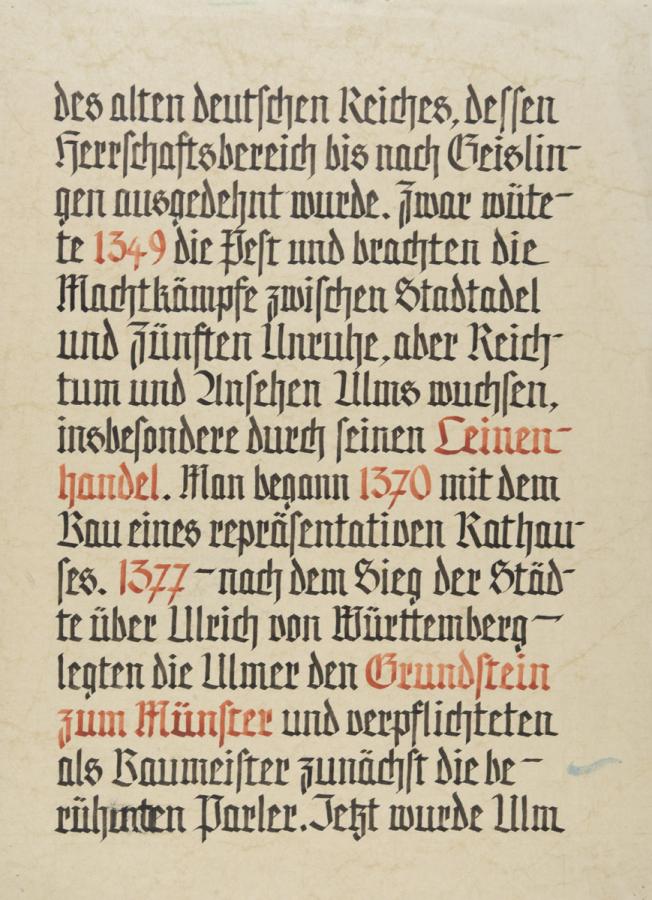 des alten deutschen Reiches, dessen
Herrschaftsbereich bis nach Geislin-
gen ausgedehnt wurde. Zwar wüte-
te 1349 die Pest und brachten die
Machtkämpfe zwischen Stadtadel
und Zünften Unruhe, aber Reich-
tum und Ansehen Ulms wuchsen,
insbesondere durch seinen Leinen-
handel. Man begann 1370 mit dem
Bau eines repräsentativen Rathau-
ses. 1377 – nach dem Sieg der Städ-
te über Ulrich von Württemberg –
legten die Ulmer den Grundstein
zum Münster und verpflichteten
als Baumeister zunächst die be-
rühmten Parler. Jetzt wurde Ulm